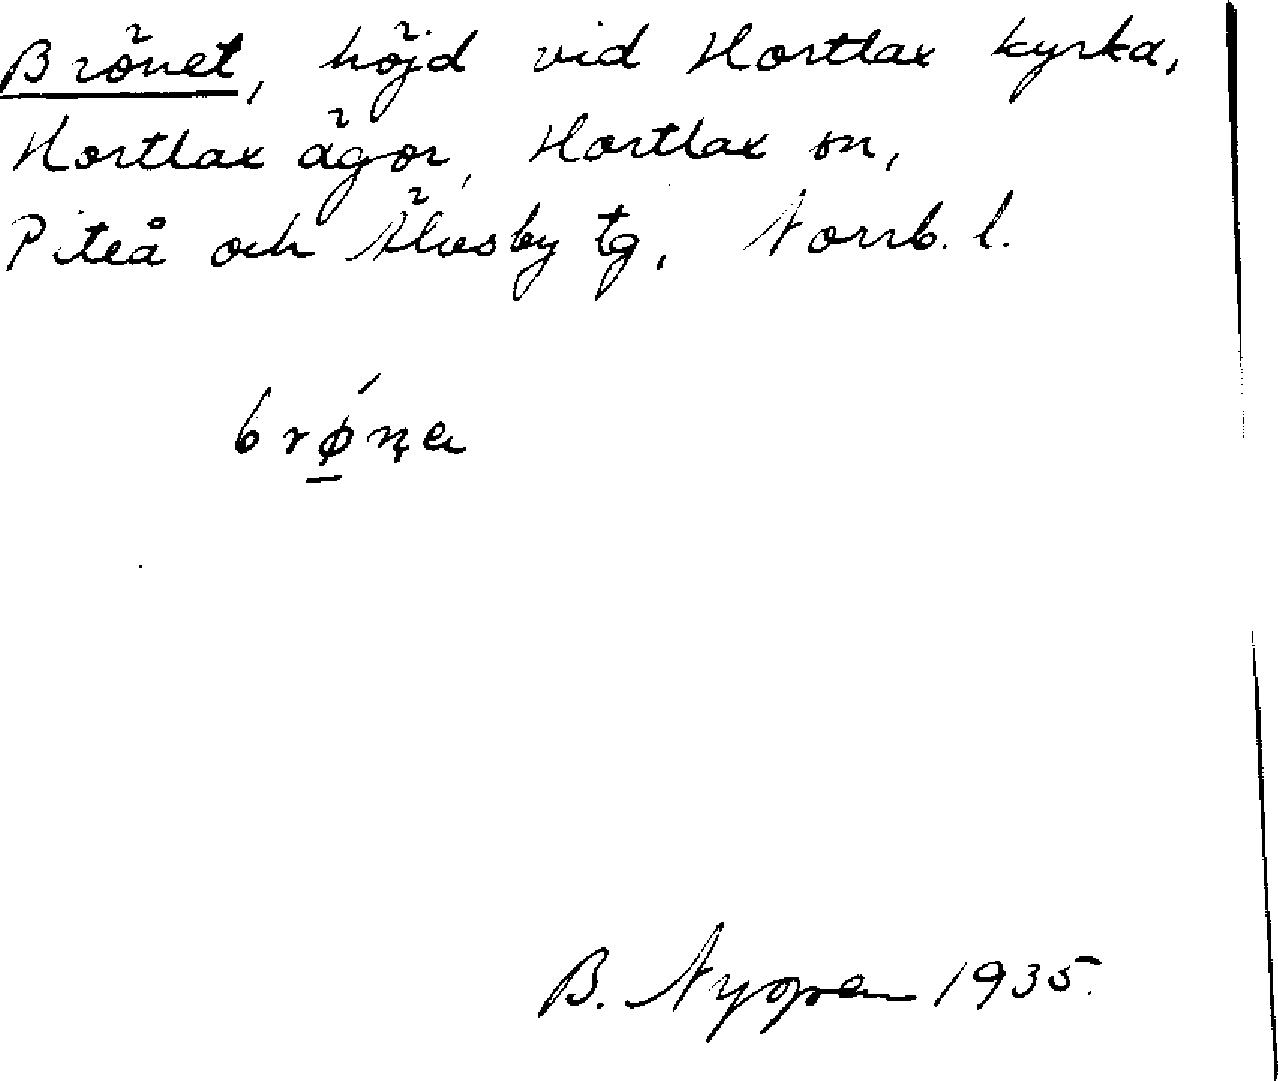 Brönet, höjd vid Hortlax kyrka,
Hortlax ägor, Hortlax sn,
Piteå och Älvsby tg, Norrb. l.
brǿ̱n̨a
B. Nyopen 1935.